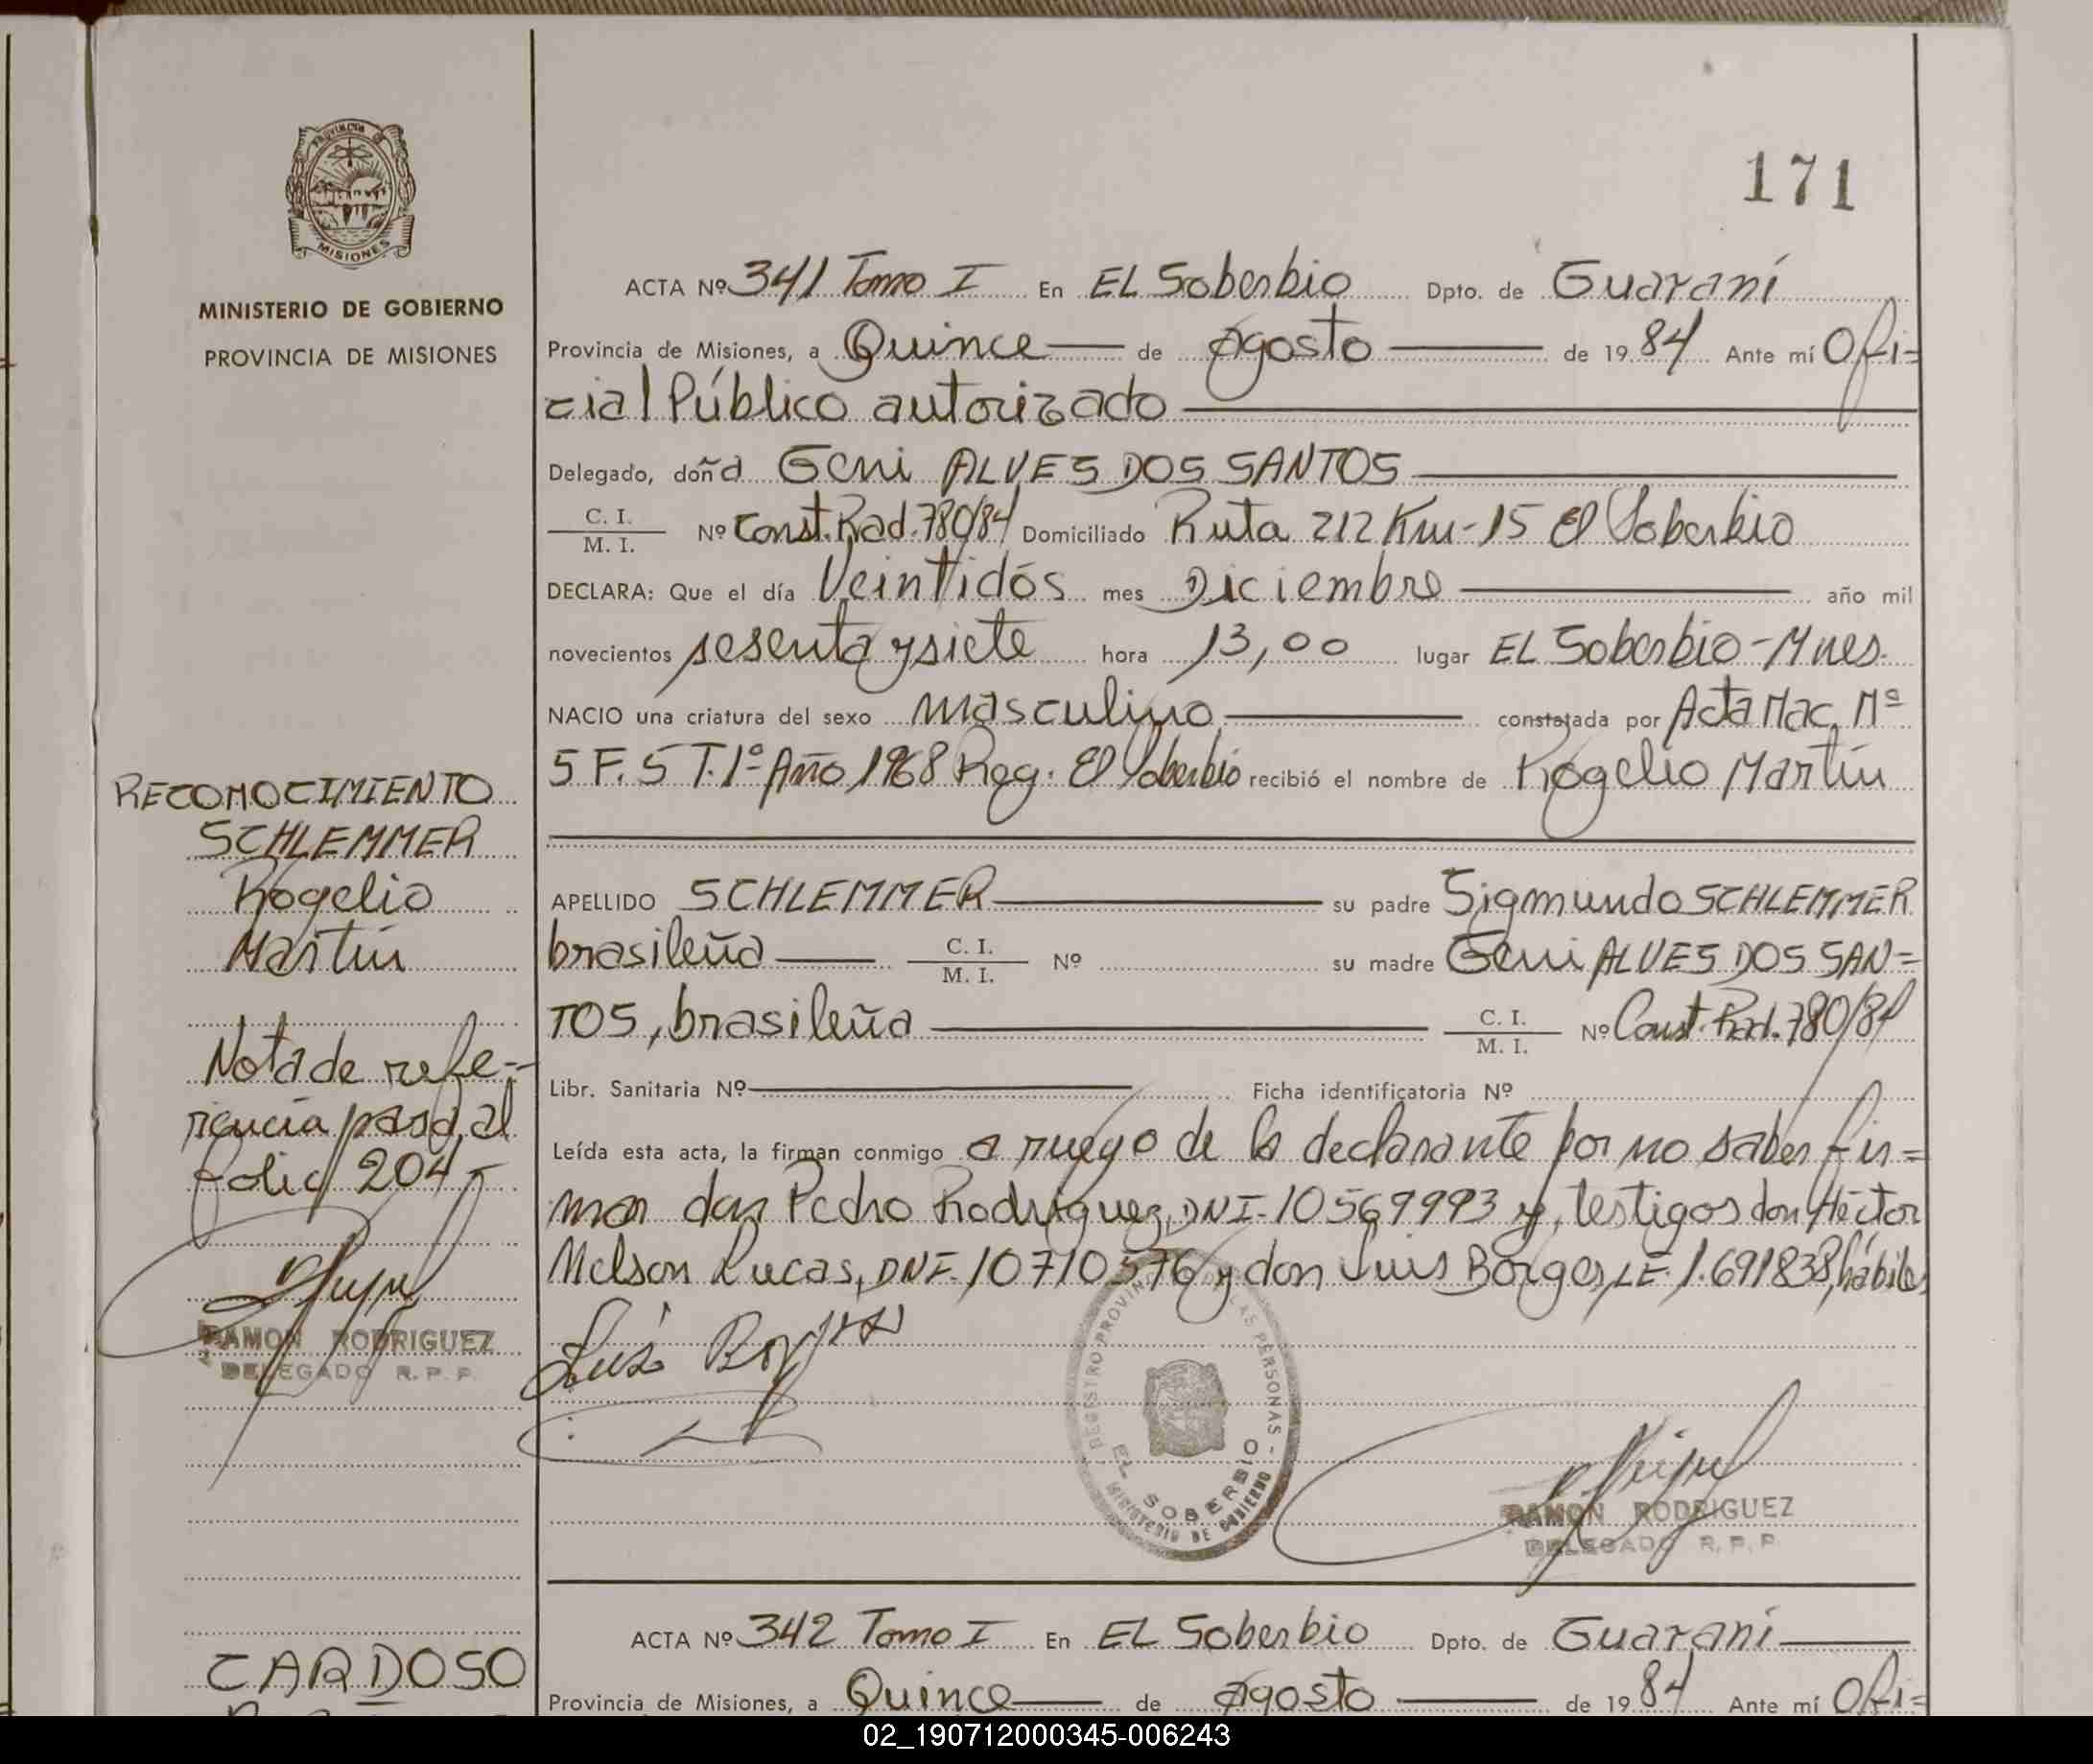 PROVINCIA DE
MISIONES
MINISTERIO DE GOBIERNO
PROVINCIA DE MISIONES
171
ACTA Nº 341 Tomo I En EL Soberbio Dpto. de Guaraní
Provincia de Misiones, a Quince de agosto de 1984 Ante mí Ofi=
cial Público autorizado
Delegado, doña Geni ALVES DOS SANTOS
C. I.
M. I. Nº Const. Rad. 780/84 Domiciliado Ruta 212 Km-15 El Soberbio
DECLARA: Que el día Veintidós mes Diciembre año mil
novecientos sesenta y siete hora 13,00 lugar EL Soberbio-Mnes.
NACIO una criatura del sexo masculino constatada por Acta Nac. Nº
5 F. 5 T. 1º Año 1968 Reg. El Soberbio recibió el nombre de Rogelio Martín
APELLIDO SCHLEMMER su padre Sigmundo SCHLEMMER
brasileña C. I.
M. I. Nº su madre Geni ALVES DOS SAN=
TOS, brasileña C. I.
M. I. Nº Const. Rad. 780/84
Libr. Sanitaria Nº Ficha identificatoria Nº
Leída esta acta, la firman conmigo a ruego de la declarante por no saber fir=
mar don Pedro Rodríguez, DNI-10569993 y, testigos don Héctor
Nelson Lucas, DNI-10710576 y don Luis Borges, LE-1.691838, hábiles
Luis Borges
REGISTRO PROVINCIAL DE LAS PERSONAS
EL SOBERBIO
MINISTERIO DE GOBIERNO
RAMON RODRIGUEZ
DELEGADO R. P. P.
RECONOCIMIENTO
SCHLEMMER
Rogelio
Martín
Nota de refe-
rencia pasa al
folio 204
RAMON RODRIGUEZ
DELEGADO R. P. P.
ACTA Nº 342 Tomo I En EL Soberbio Dpto. de Guaraní
Provincia de Misiones, a Quince de agosto de 1984 Ante mí Ofi=
CARDOSO
02_190712000345-006243